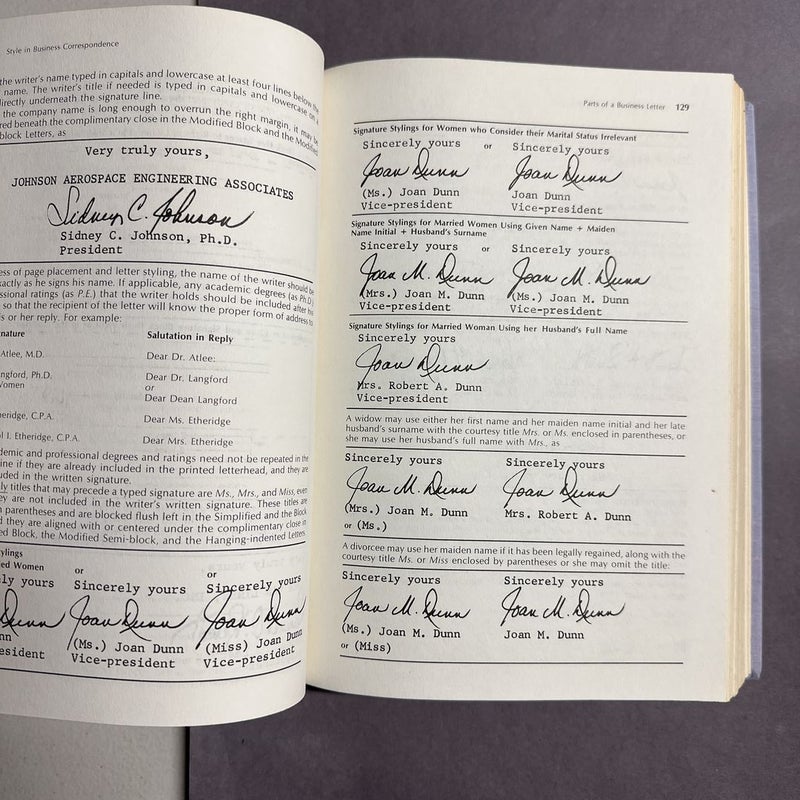 Style in Business Correspondence
the writer's name typed in capitals and lowercase at least four lines below the
name. The writer's title if needed is typed in capitals and lowercase on a
directly underneath the signature line.
the company name is long enough to overrun the right margin, it may be
beneath the complimentary close in the Modified Block and the Modified
block Letters, as
Very truly yours,
JOHNSON AEROSPACE ENGINEERING ASSOCIATES
Sidney C. Johnson
Sidney C. Johnson, Ph.D.
President
of page placement and letter styling, the name of the writer should be
exactly as he signs his name. If applicable, any academic degrees (as Ph.D.)
ratings (as P.E.) that the writer holds should be included after his
so that the recipient of the letter will know the proper form of address to
or her reply. For example:
Salutation in Reply
Atlee, M.D.
Dear Dr. Atlee:
Ph.D.
Dear Dr. Langford
or
women
Dear Dean Langford
C.P.A.
Dear Ms. Etheridge
I. Etheridge, C.P.A.
Dear Mrs. Etheridge
and professional degrees and ratings need not be repeated in the
if they are already included in the printed letterhead, and they are
in the written signature.
titles that may precede a typed signature are Ms., Mrs., and Miss, even
are not included in the writer's written signature. These titles are
parentheses and are blocked flush left in the Simplified and the Block
they are aligned with or centered under the complimentary close in
Block, the Modified Semi-block, and the Hanging-indented Letters.
or
Sincerely yours
Joan Dunn
(Ms.) Joan Dunn
Vice-president
or
Sincerely yours
Joan Dunn
(Miss) Joan Dunn
Vice-president
Parts of a Business Letter 129
Signature Stylings for Women who Consider their Marital Status Irrelevant
Sincerely yours or Sincerely yours
Joan Dunn Joan Dunn
(Ms.) Joan Dunn Joan Dunn
Vice-president Vice-president
Signature Stylings for Married Women Using Given Name + Maiden
Name Initial + Husband's Surname
Sincerely yours or Sincerely yours
Joan M. Dunn Joan M. Dunn
(Mrs.) Joan M. Dunn (Ms.) Joan M. Dunn
Vice-president Vice-president
Signature Stylings for Married Woman Using her Husband's Full Name
Sincerely yours
Joan Dunn
Mrs. Robert A. Dunn
Vice-president
A widow may use either her first name and her maiden name initial and her late
husband's surname with the courtesy title Mrs. or Ms. enclosed in parentheses, or
she may use her husband's full name with Mrs., as
Sincerely yours Sincerely yours
Joan M. Dunn Joan Dunn
(Mrs.) Joan M. Dunn Mrs. Robert A. Dunn
or (Ms.)
A divorcee may use her maiden name if it has been legally regained, along with the
courtesy title Ms. or Miss enclosed by parentheses or she may omit the title:
Sincerely yours Sincerely yours
Joan M. Dunn Joan M. Dunn
(Ms.) Joan M. Dunn Joan M. Dunn
or (Miss)